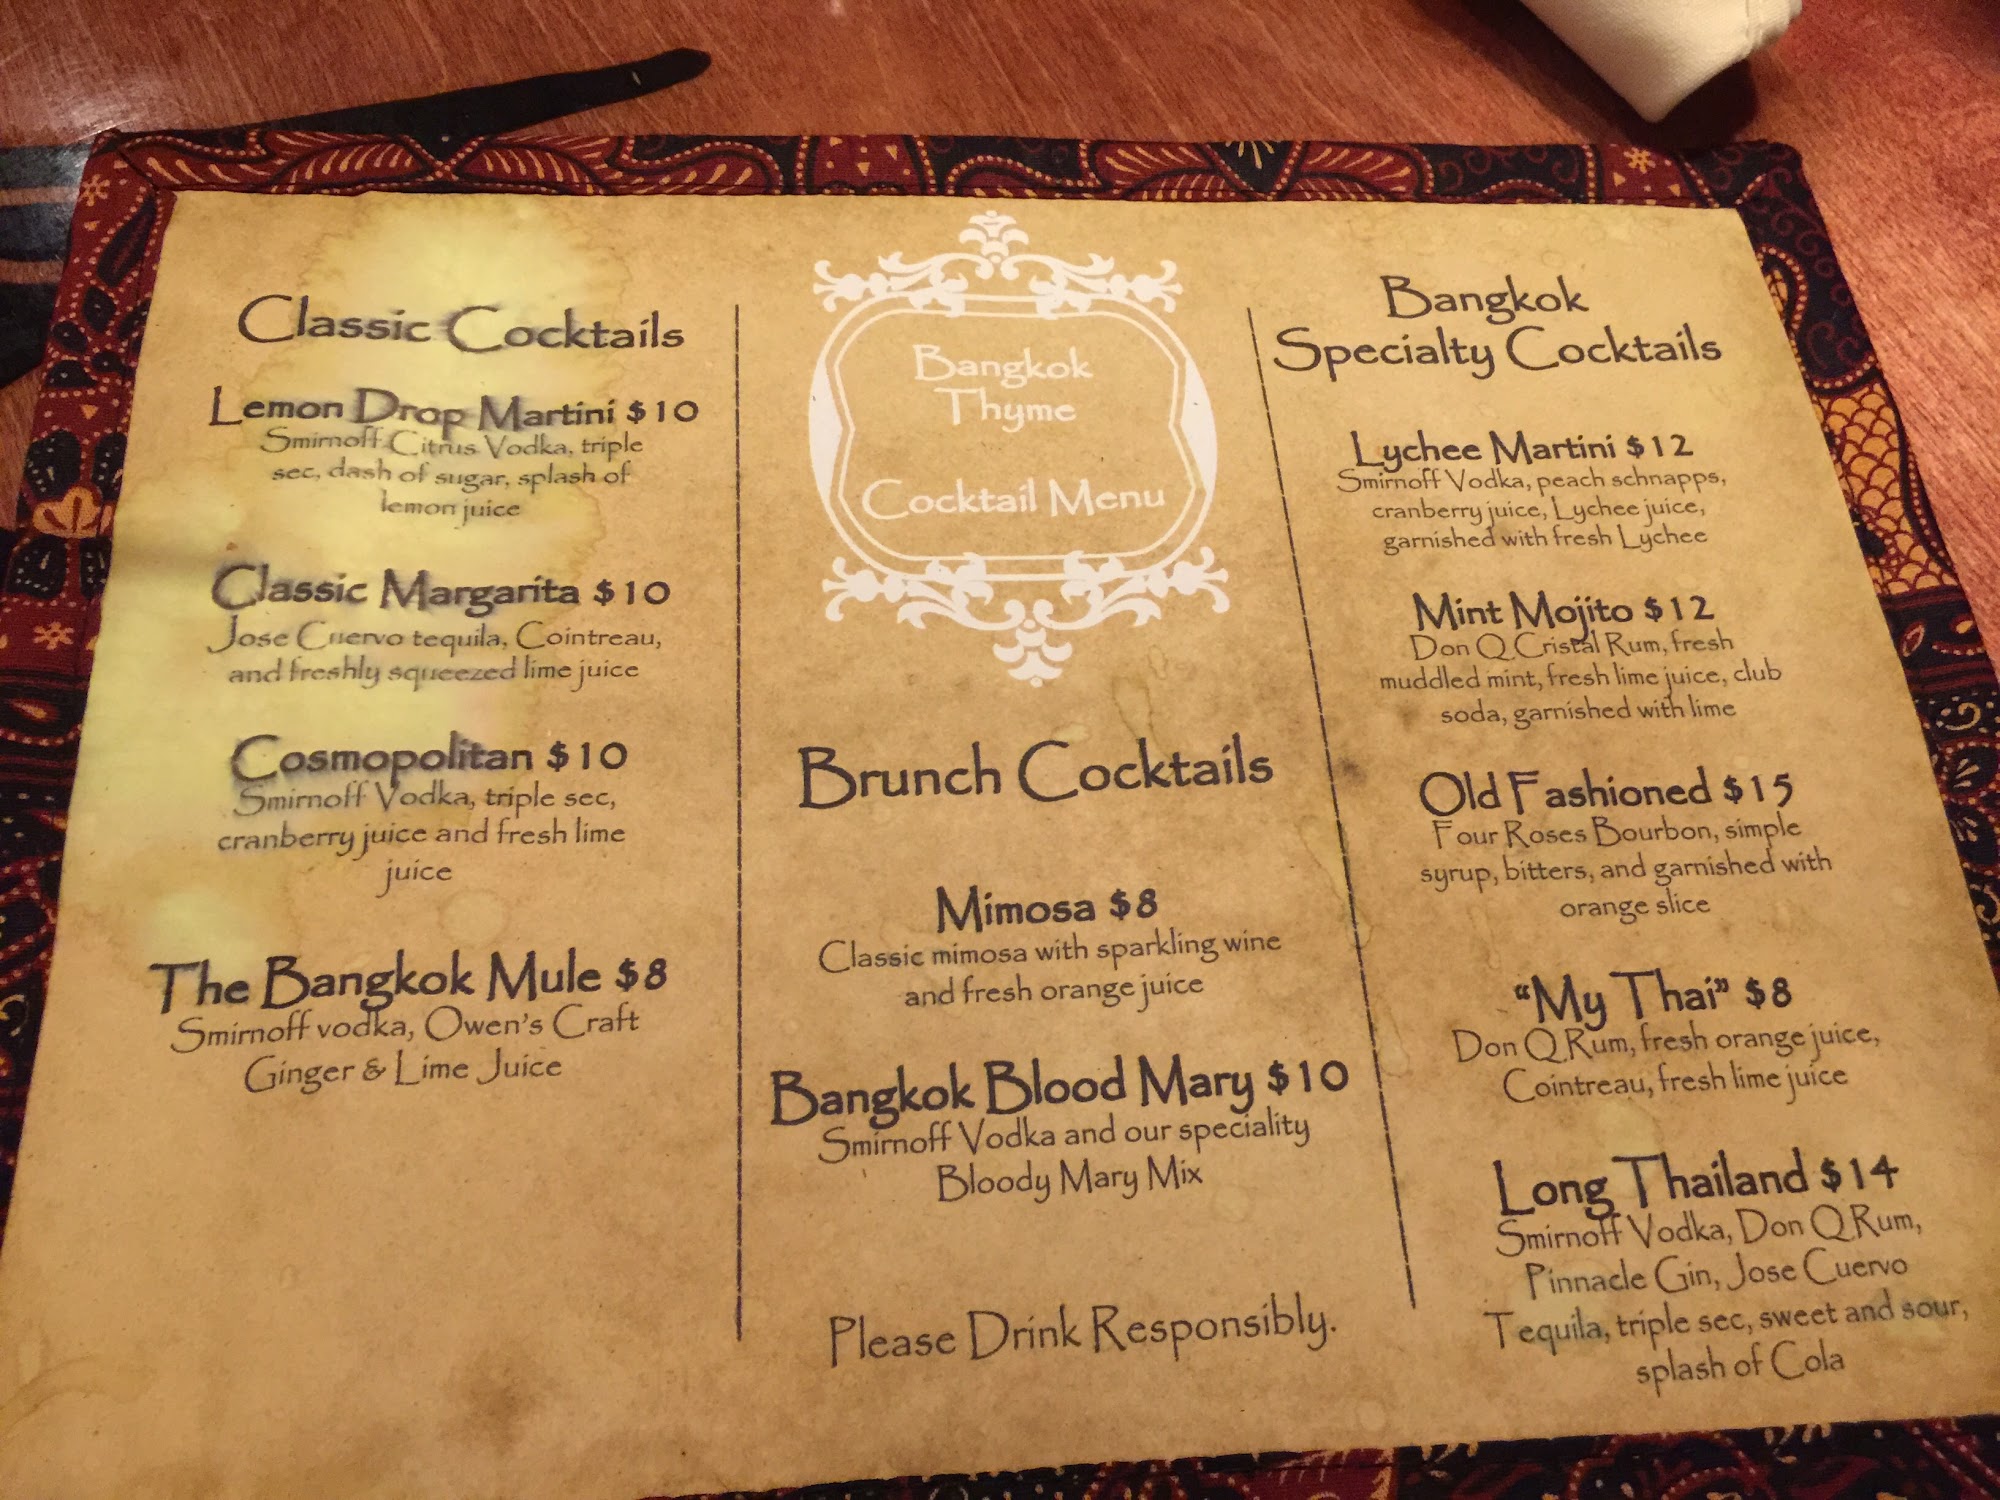 Classic Cocktails
Lemon Drop Martini $10
Smirnoff Citrus Vodka, triple
sec, dash of sugar, splash of
lemon juice
Classic Margarita $10
Jose Cuervo tequila, Cointreau,
and freshly squeezed lime juice
Cosmopolitan $10
Smirnoff Vodka, triple sec,
cranberry juice and fresh lime
juice
The Bangkok Mule $8
Smirnoff vodka, Owen's Craft
Ginger & Lime Juice
Bangkok
Thyme
Cocktail Menu
Brunch Cocktails
Mimosa $8
Classic mimosa with sparkling wine
and fresh orange juice
Bangkok Blood Mary $10
Smirnoff Vodka and our speciality
Bloody Mary Mix
Please Drink Responsibly.
Bangkok
Specialty Cocktails
Lychee Martini $12
Smirnoff Vodka, peach schnapps,
cranberry juice, Lychee juice,
garnished with fresh Lychee
Mint Mojito $12
Don Q Cristal Rum, fresh
muddled mint, fresh lime juice, club
soda, garnished with lime
Old Fashioned $15
Four Roses Bourbon, simple
syrup, bitters, and garnished with
orange slice
“My Thai” $8
Don Q Rum, fresh orange juice,
Cointreau, fresh lime juice
Long Thailand $14
Smirnoff Vodka, Don Q Rum,
Pinnacle Gin, Jose Cuervo
Tequila, triple sec, sweet and sour,
splash of Cola